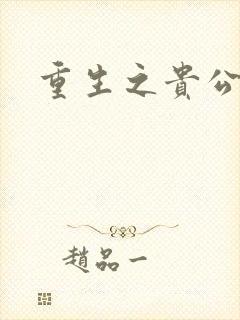 重生之貴公
趙品一